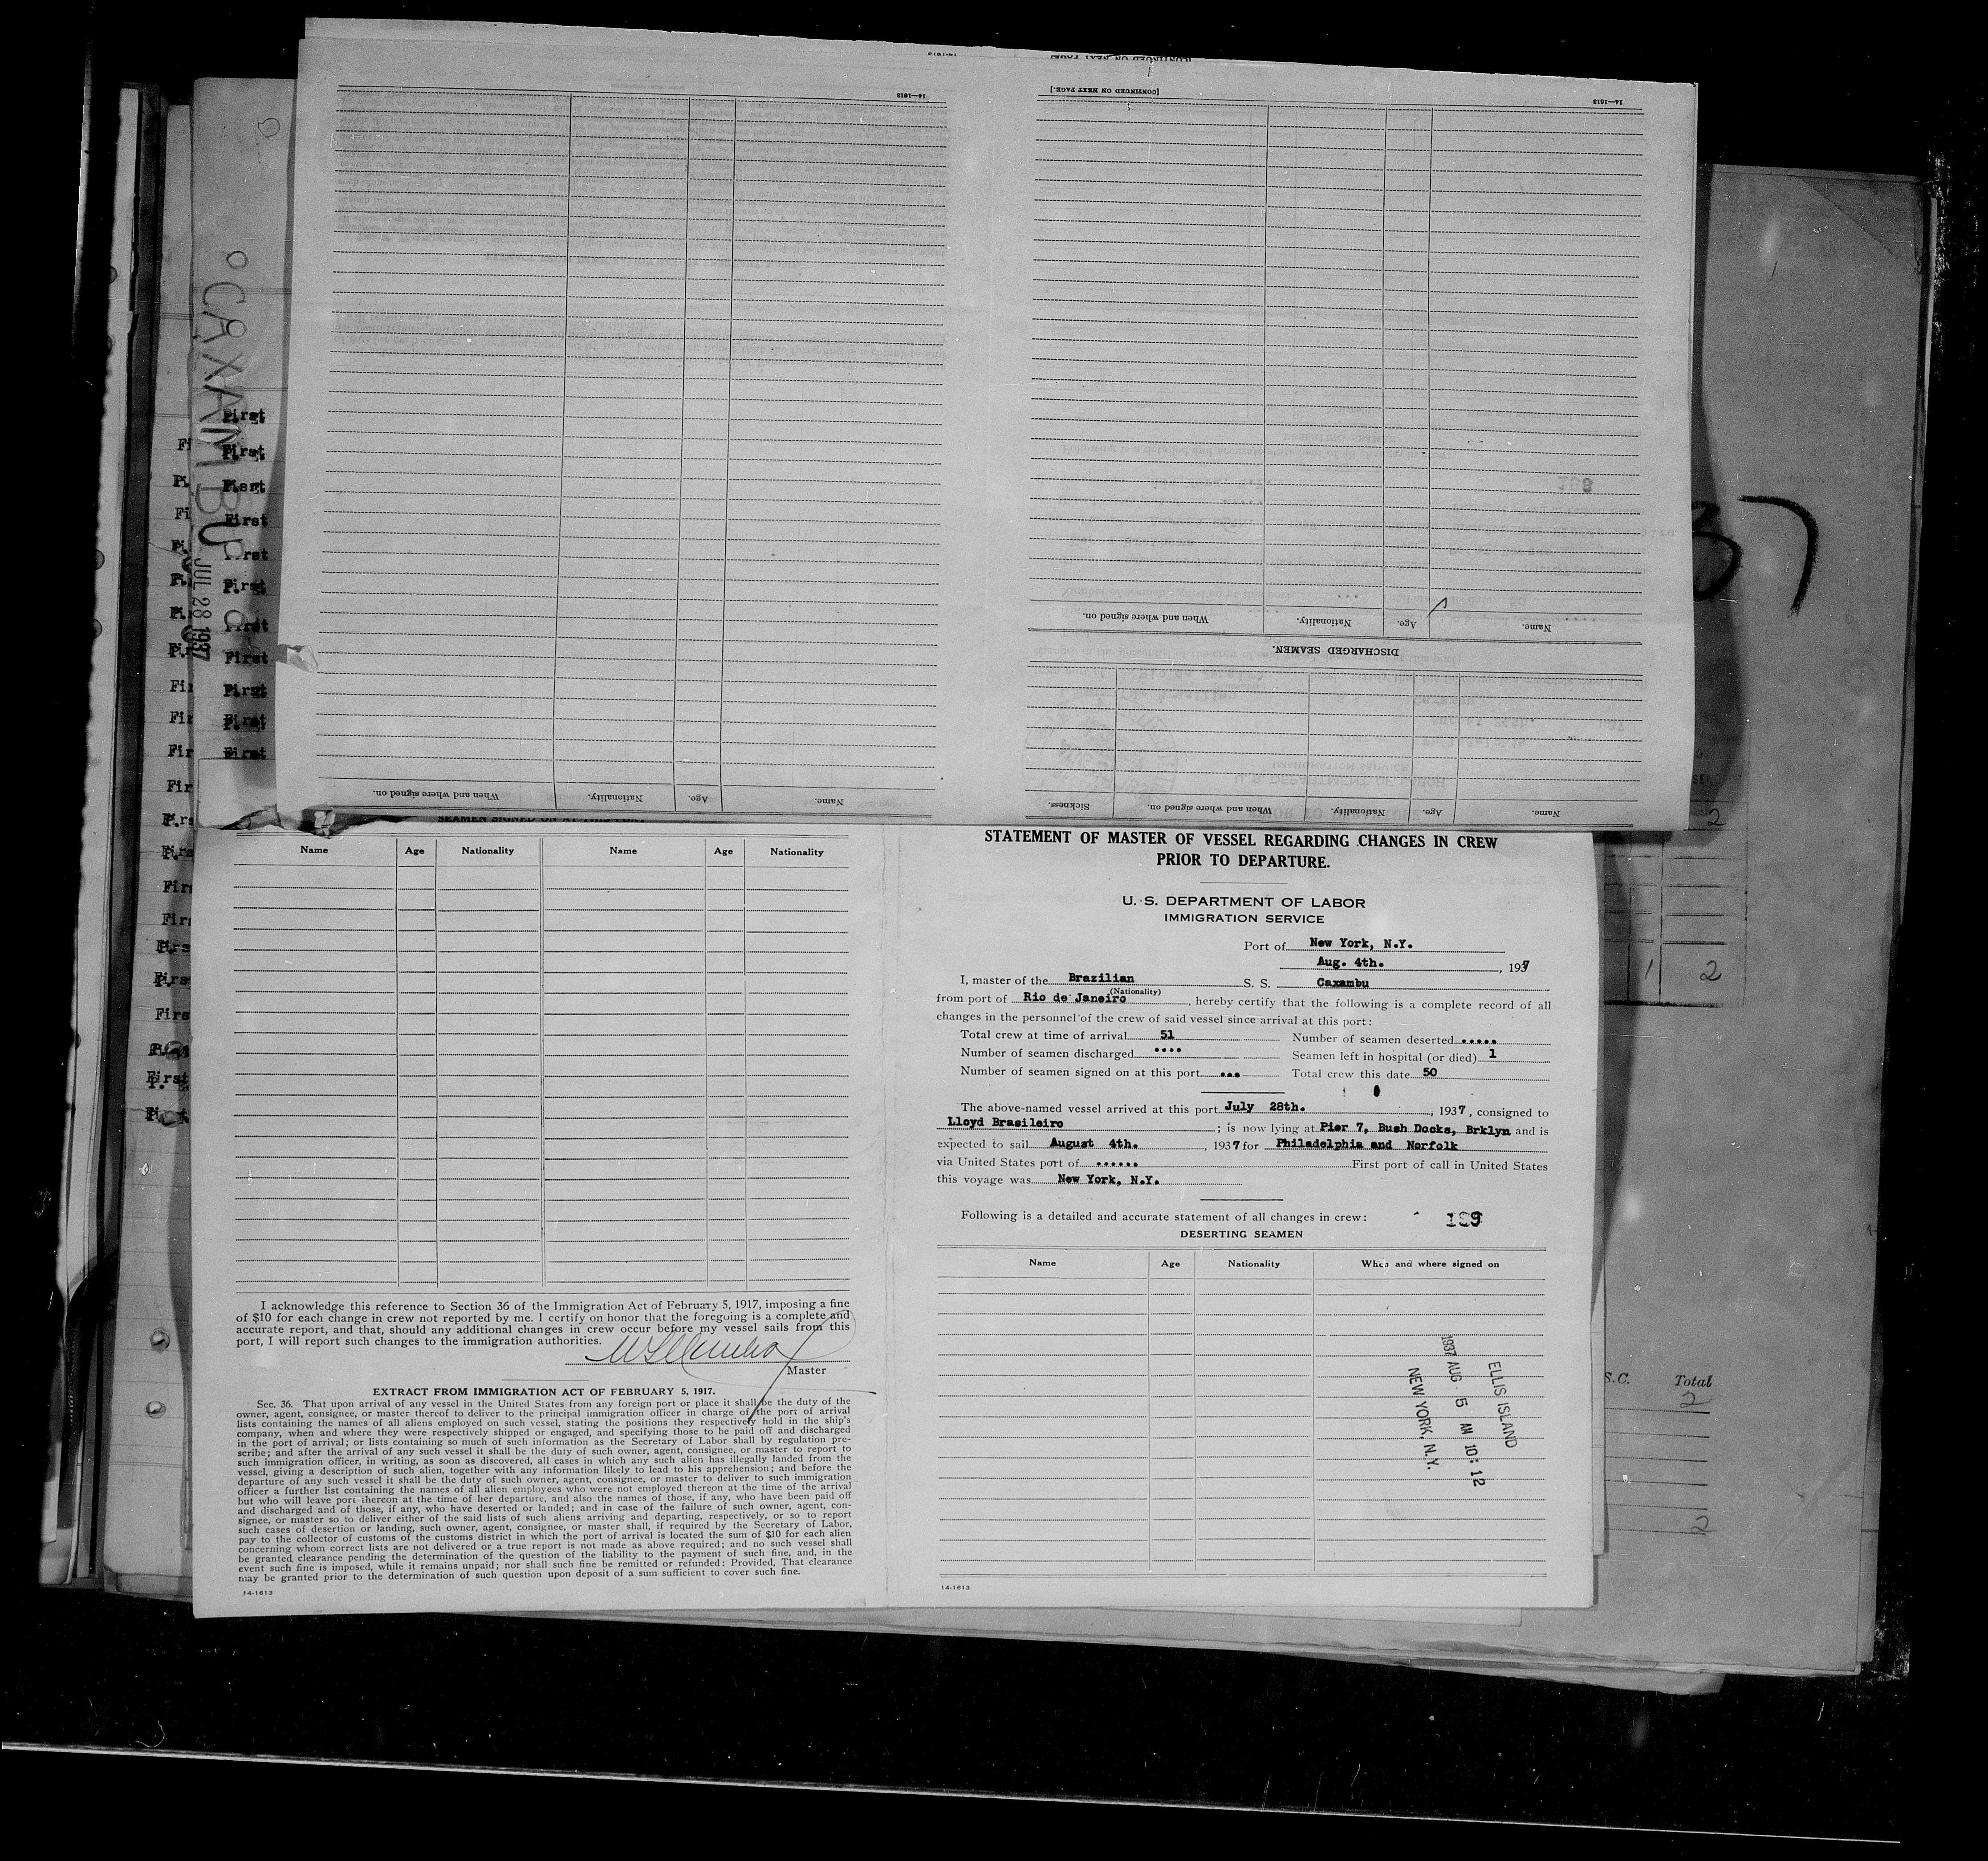 14-1613
[CONTINUED ON NEXT PAGE.]
14—1613
14—1613
Name.
Age.
Nationality.
When and where signed on.
DISCHARGED SEAMEN.
Name.
Age.
Nationality.
When and where signed on.
Sickness.
Name.
Age.
Nationality.
When and where signed on.
CAXAMBU
JUL 28 1937
First
First
First
First
First
First
First
First
First
First
37
2
1 2
S.C. Total
2
2
SEAMEN SIGNED ON AT THIS PORT
Name Age Nationality Name Age Nationality
I acknowledge this reference to Section 36 of the Immigration Act of February 5, 1917, imposing a fine
of $10 for each change in crew not reported by me. I certify on honor that the foregoing is a complete and
accurate report, and that, should any additional changes in crew occur before my vessel sails from this
port, I will report such changes to the immigration authorities.
Master
EXTRACT FROM IMMIGRATION ACT OF FEBRUARY 5, 1917.
Sec. 36. That upon arrival of any vessel in the United States from any foreign port or place it shall be the duty of the
owner, agent, consignee, or master thereof to deliver to the principal immigration officer in charge of the port of arrival
lists containing the names of all aliens employed on such vessel, stating the positions they respectively hold in the ship's
company, when and where they were respectively shipped or engaged, and specifying those to be paid off and discharged
in the port of arrival; or lists containing so much of such information as the Secretary of Labor shall by regulation pre-
scribe; and after the arrival of any such vessel it shall be the duty of such owner, agent, consignee, or master to report to
such immigration officer, in writing, as soon as discovered, all cases in which any such alien has illegally landed from the
vessel, giving a description of such alien, together with any information likely to lead to his apprehension; and before the
departure of any such vessel it shall be the duty of such owner, agent, consignee, or master to deliver to such immigration
officer a further list containing the names of all alien employees who were not employed thereon at the time of the arrival
but who will leave port thereon at the time of her departure, and also the names of those, if any, who have been paid off
and discharged and of those, if any, who have deserted or landed; and in case of the failure of such owner, agent, con-
signee, or master so to deliver either of the said lists of such aliens arriving and departing, respectively, or so to report
such cases of desertion or landing, such owner, agent, consignee, or master shall, if required by the Secretary of Labor,
pay to the collector of customs of the customs district in which the port of arrival is located the sum of $10 for each alien
concerning whom correct lists are not delivered or a true report is not made as above required; and no such vessel shall
be granted clearance pending the determination of the question of the liability to the payment of such fine, and, in the
event such fine is imposed, while it remains unpaid; nor shall such fine be remitted or refunded: Provided, That clearance
may be granted prior to the determination of such question upon deposit of a sum sufficient to cover such fine.
14-1613
STATEMENT OF MASTER OF VESSEL REGARDING CHANGES IN CREW
PRIOR TO DEPARTURE.
U. S. DEPARTMENT OF LABOR
IMMIGRATION SERVICE
Port of New York, N.Y.
Aug. 4th. , 1937
I, master of the Brazilian S. S. Caxambu
(Nationality)
from port of Rio de Janeiro , hereby certify that the following is a complete record of all
changes in the personnel of the crew of said vessel since arrival at this port:
Total crew at time of arrival 51 Number of seamen deserted .....
Number of seamen discharged .... Seamen left in hospital (or died) 1
Number of seamen signed on at this port ... Total crew this date 50
The above-named vessel arrived at this port July 28th. , 1937, consigned to
Lloyd Brasileiro ; is now lying at Pier 7, Bush Docks, Brklyn and is
expected to sail August 4th. , 1937 for Philadelphia and Norfolk
via United States port of ...... First port of call in United States
this voyage was New York, N.Y.
Following is a detailed and accurate statement of all changes in crew: 189
DESERTING SEAMEN
Name Age Nationality When and where signed on
ELLIS ISLAND
1937 AUG 5 AM 10:12
NEW YORK, N.Y.
14-1613